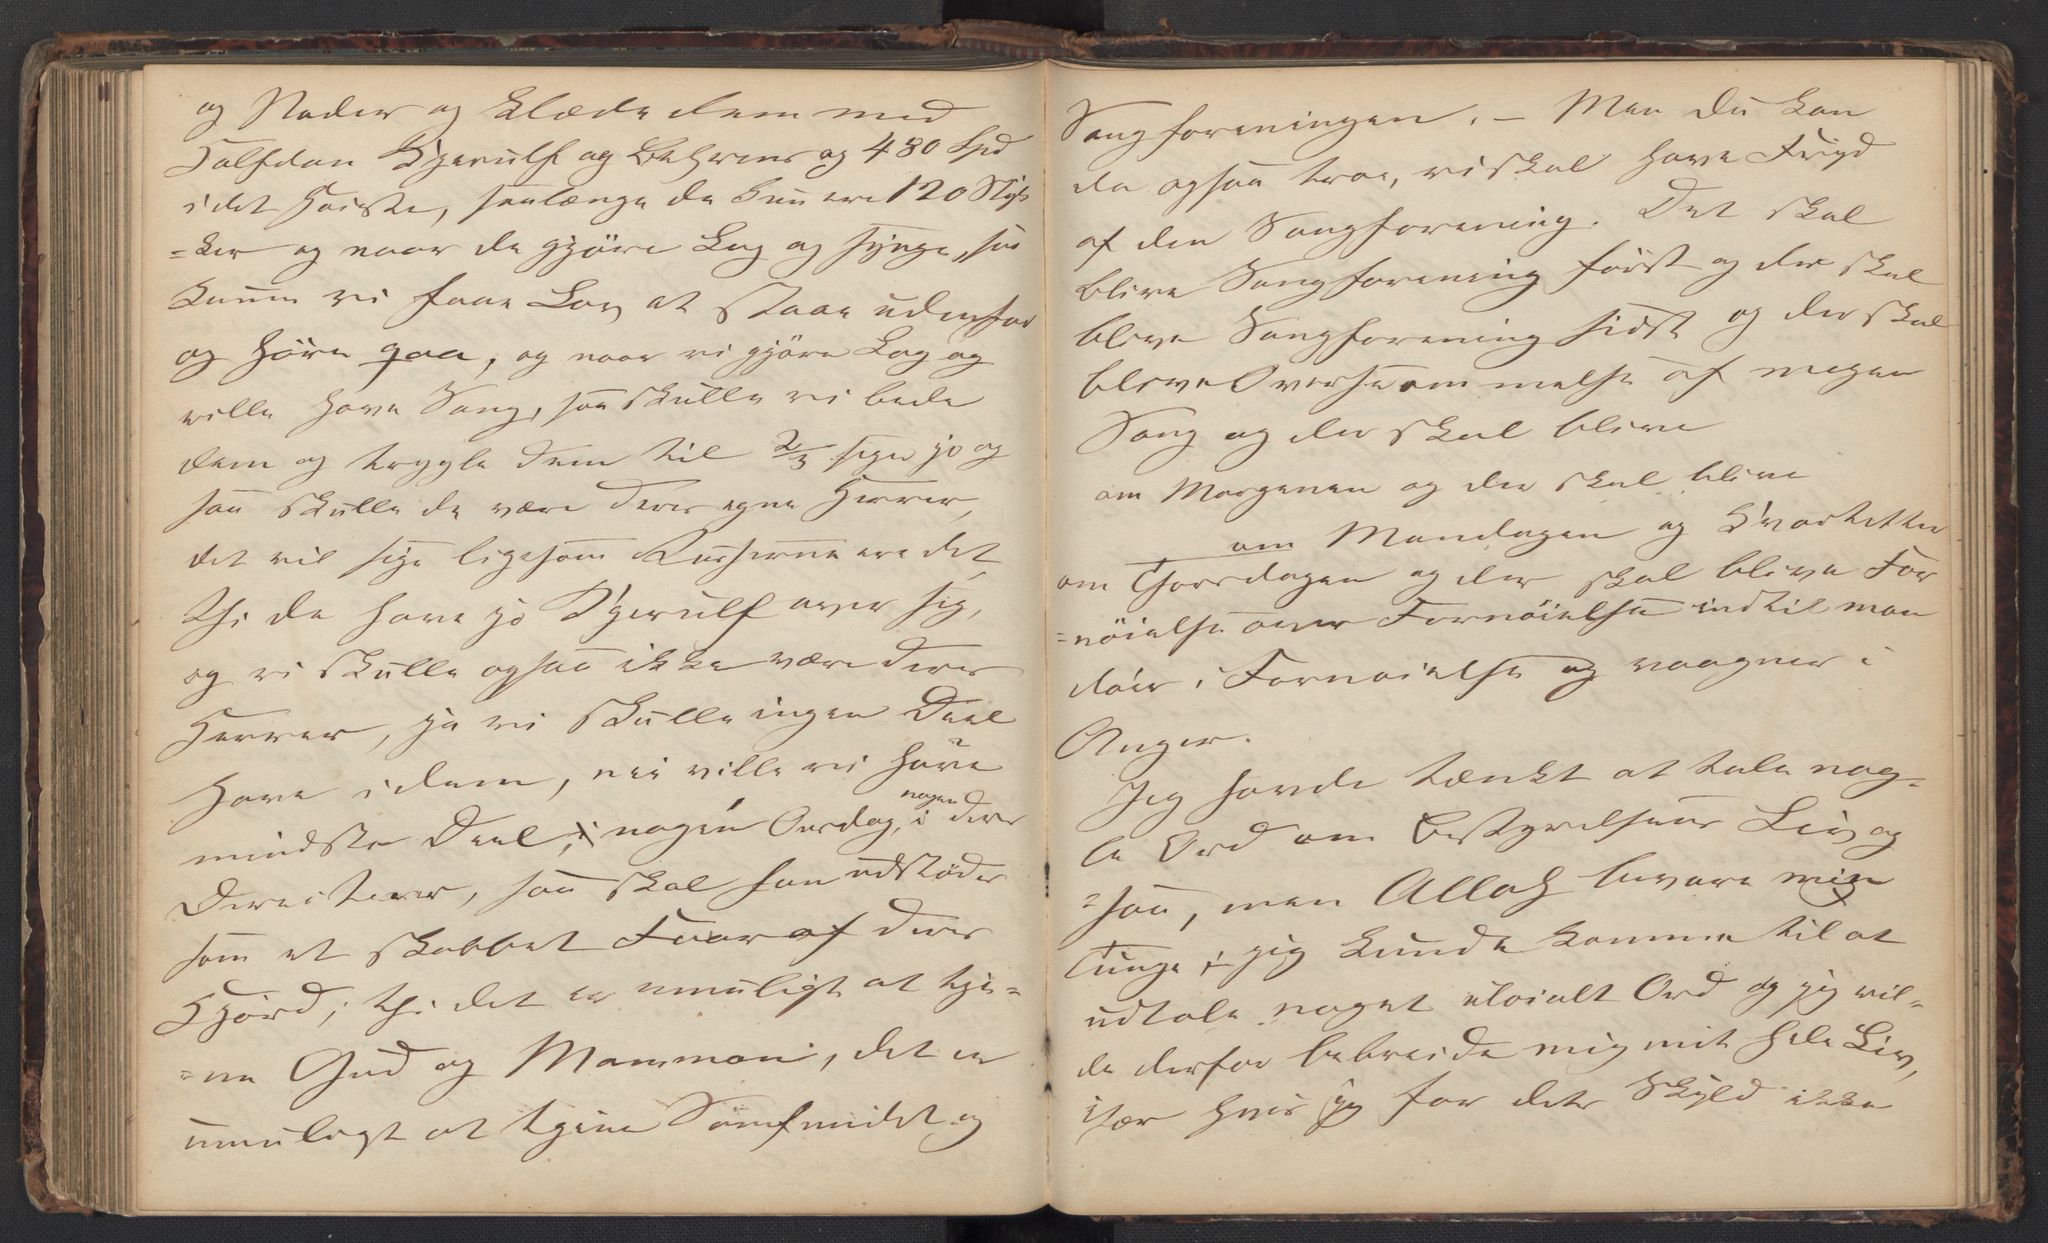 og Noder og klæde dem med
Halfdan Kjerulf og Behrens og 480 Spd
i det Høieste, saalænge de kun ere 120 Styk
=ker og naar de gjöre Lag og synge, saa
kunne vi faae Lov at staae udenfor
og höre paa, og naar vi gjöre Lag og
ville have Sang, saa skulle vi bede
dem og trygle dem til 2/3 siger jo og
saa skulle de være deres egne Herrer,
det vil sige ligesom Russerne ere det,
thi de have jo Kjerulf over sig,
og vi skulle ogsaa ikke være deres
Herrer, ja vi skulle ingen Deel
have i dem, nei ville vi have
mindste Deel, i nogen Onsdag, nogen i deres
Directeurer, saa skal han udstödes
som et skabbet Faar af deres
Hjörd; thi det er umuligt at tje=
=ne Gud og Mammon, det er
umuligt at tjene Samfundet og
Sangforeningen. – Men du kan
da ogsaa troe, vi skal have Fryd
af den Sangforening. Det skal
blive Sangforening först og der skal
blive Sangforening sidst og der skal
blive Oversvømmelse af megen
Sang og der skal blive
om Morgenen og der skal blive
om Mandagen og Kvartetter
om Thorsdagen og der skal blive For
=nöielse over Fornöielse indtil man
döer i Fornöielse og vaagner i
Anger.
Jeg havde tænkt at tale nog=
le Ord om Bestyrelsens Liv og
=saa, men Allah bevare min
Tunge, jeg kunde komme til at
udtale noget uloialt Ord og jeg vil=
de derfor bebreide mig mit hele Liv,
især hvis jeg for dets Skyld ikke